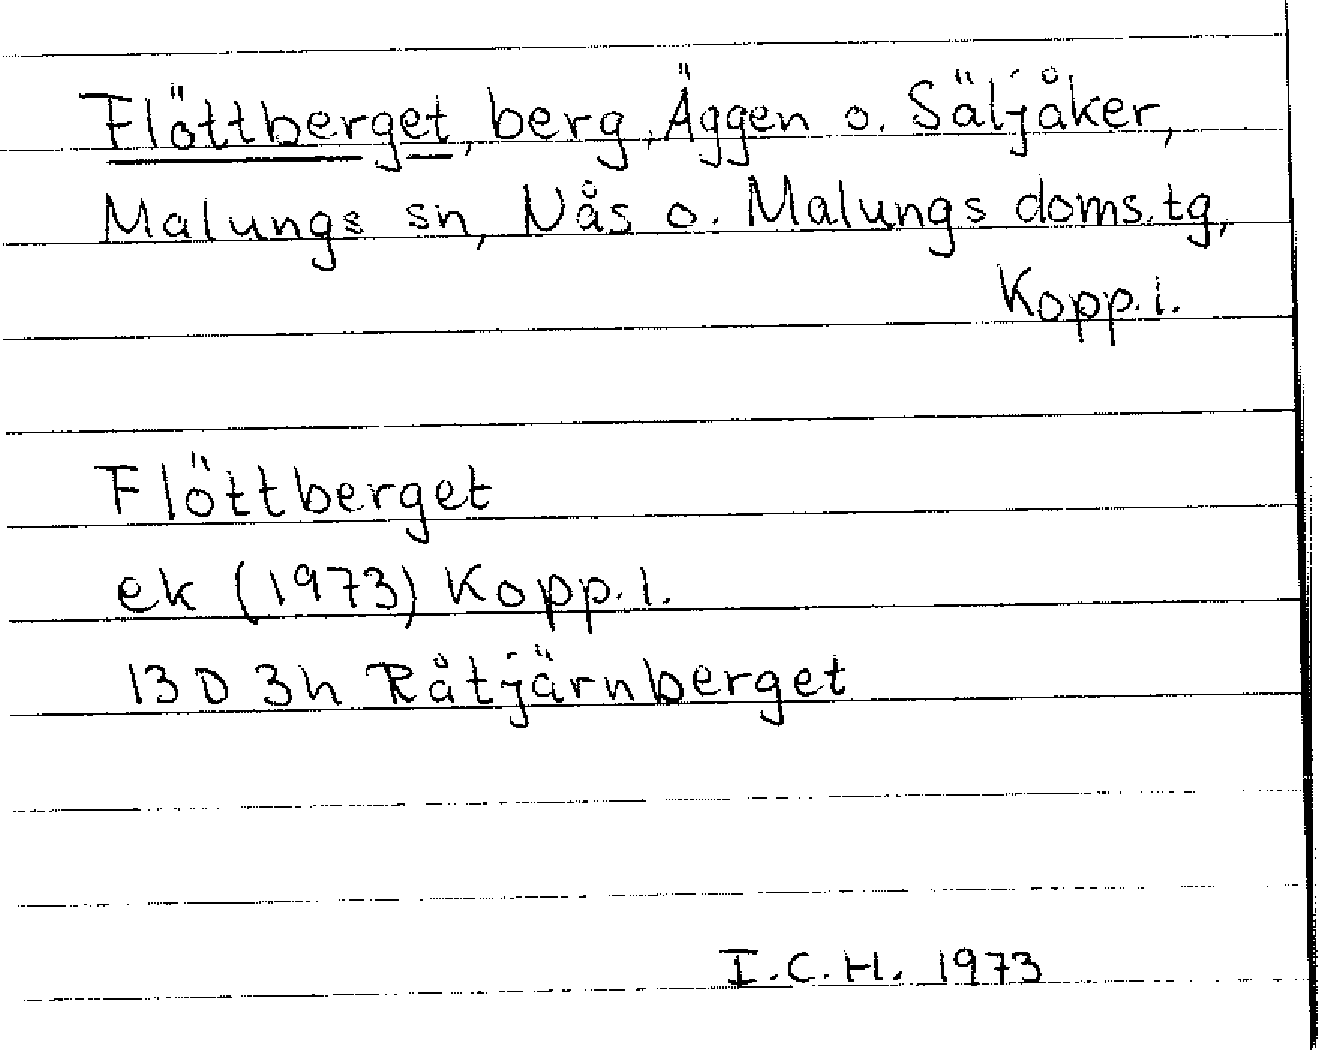 Flöttberget, berg, Äggen o. Säljåker,
Malungs sn, Nås o. Malungs doms.tg,
Kopp.l.
Flöttberget
ek (1973) Kopp.l.
13 D 3h Råtjärnberget
I.C.H. 1973